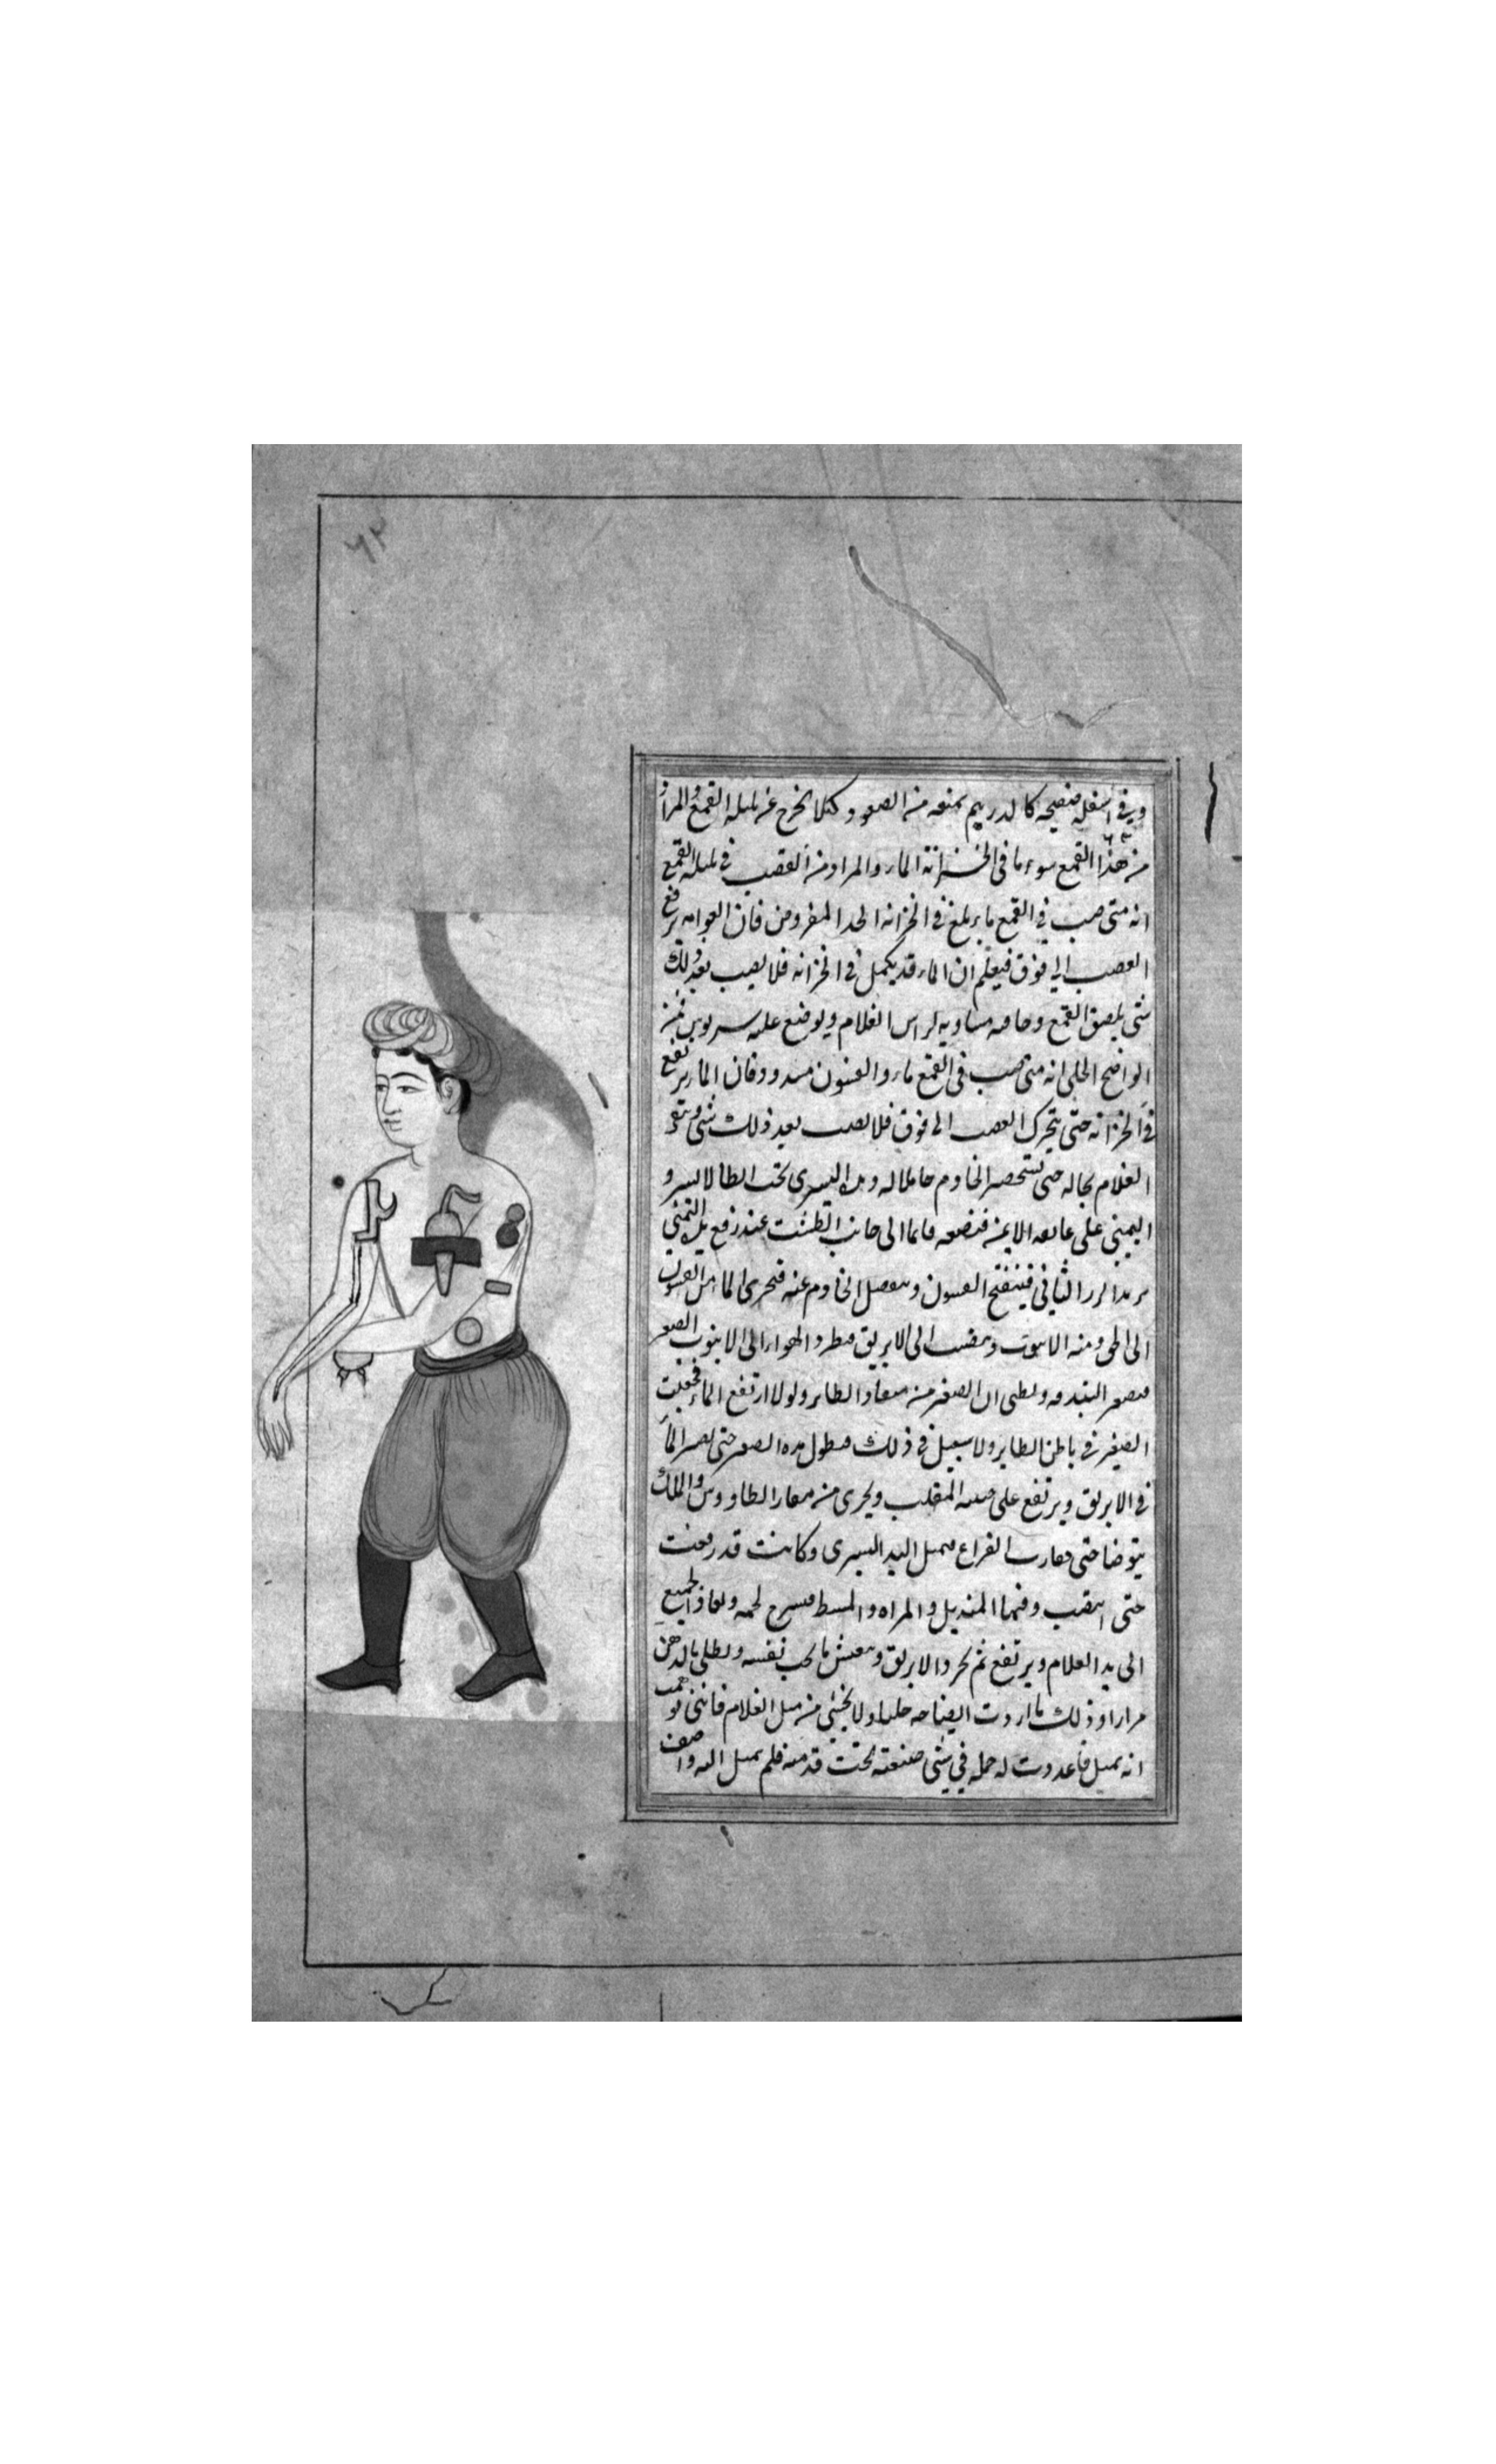 ٦٢
وفي اسفله صفيحه كالدرهم تمنعه من الصعود وكيلا يخرج عن بلبله القمع والمراد
من هذا القمع سوء ما في الخزانة الماء والمراد من القصب في بلبله القمع
انه متى صب في القمع ماء وبلغ في الخزانه الحد المفروض فان العوامه ترفع
القصب الى فوق فيعلم ان الماء قد يكمل في الخزانه فلا يصب بعد ذلك
شي يلصق القمع وحافه مساويه لراس الغلام ويوضع عليه سربوس فمن
الواضح الجلي انه متى صب في القمع ماء والفنون مسدود فان الماء يرتفع
في الخزانه حتى يتحرك القصب الى فوق فلا يصب بعد ذلك شي ويبقى
الغلام بحاله حتى يستحضر الخادم حاملا له ويده اليسرى تحت ابطه الايسر و
اليمنى على عاتقه الايمن فيضعه قايما الى جانب الطشت عند رفع يده اليمنى
يريد الزر الثاني فينفتح الفنون وينفصل الخادم عنه فيجري الماء من الفنون
الى الحق ومنه الى الانبوب وينصب الى الابريق فيطرد الهواء الى الانبوب الصغير
فيصفر البندقه ويظن ان الصفير من منقار الطاير ولولا ارتفع الماء فجعلت
الصفير في باطن الطاير ولا سبيل في ذلك فيطول مده الصفير حتى يصير الماء
في الابريق ويرتفع على المقلب ويجري من منقار الطاووس والملك
يتوضا حتى يقارب الفراغ فيميل اليد اليسرى وكانت قد رفعت
حتى انتصب وفيها المنديل والمراه والمشط فيسرح لحيه ويعاد الجميع
الى يد الغلام ويرتفع ثم يجرد الابريق ما يجب نفسه ويطلى بالدهن
مرارا وذلك ما اردت ايضاحه جليا ولا يخفى من ميل الغلام فانني توهمت
انه يميل فاعددت له حمله في شي صنعته تحت قدميه فلم يميل اليه واصف